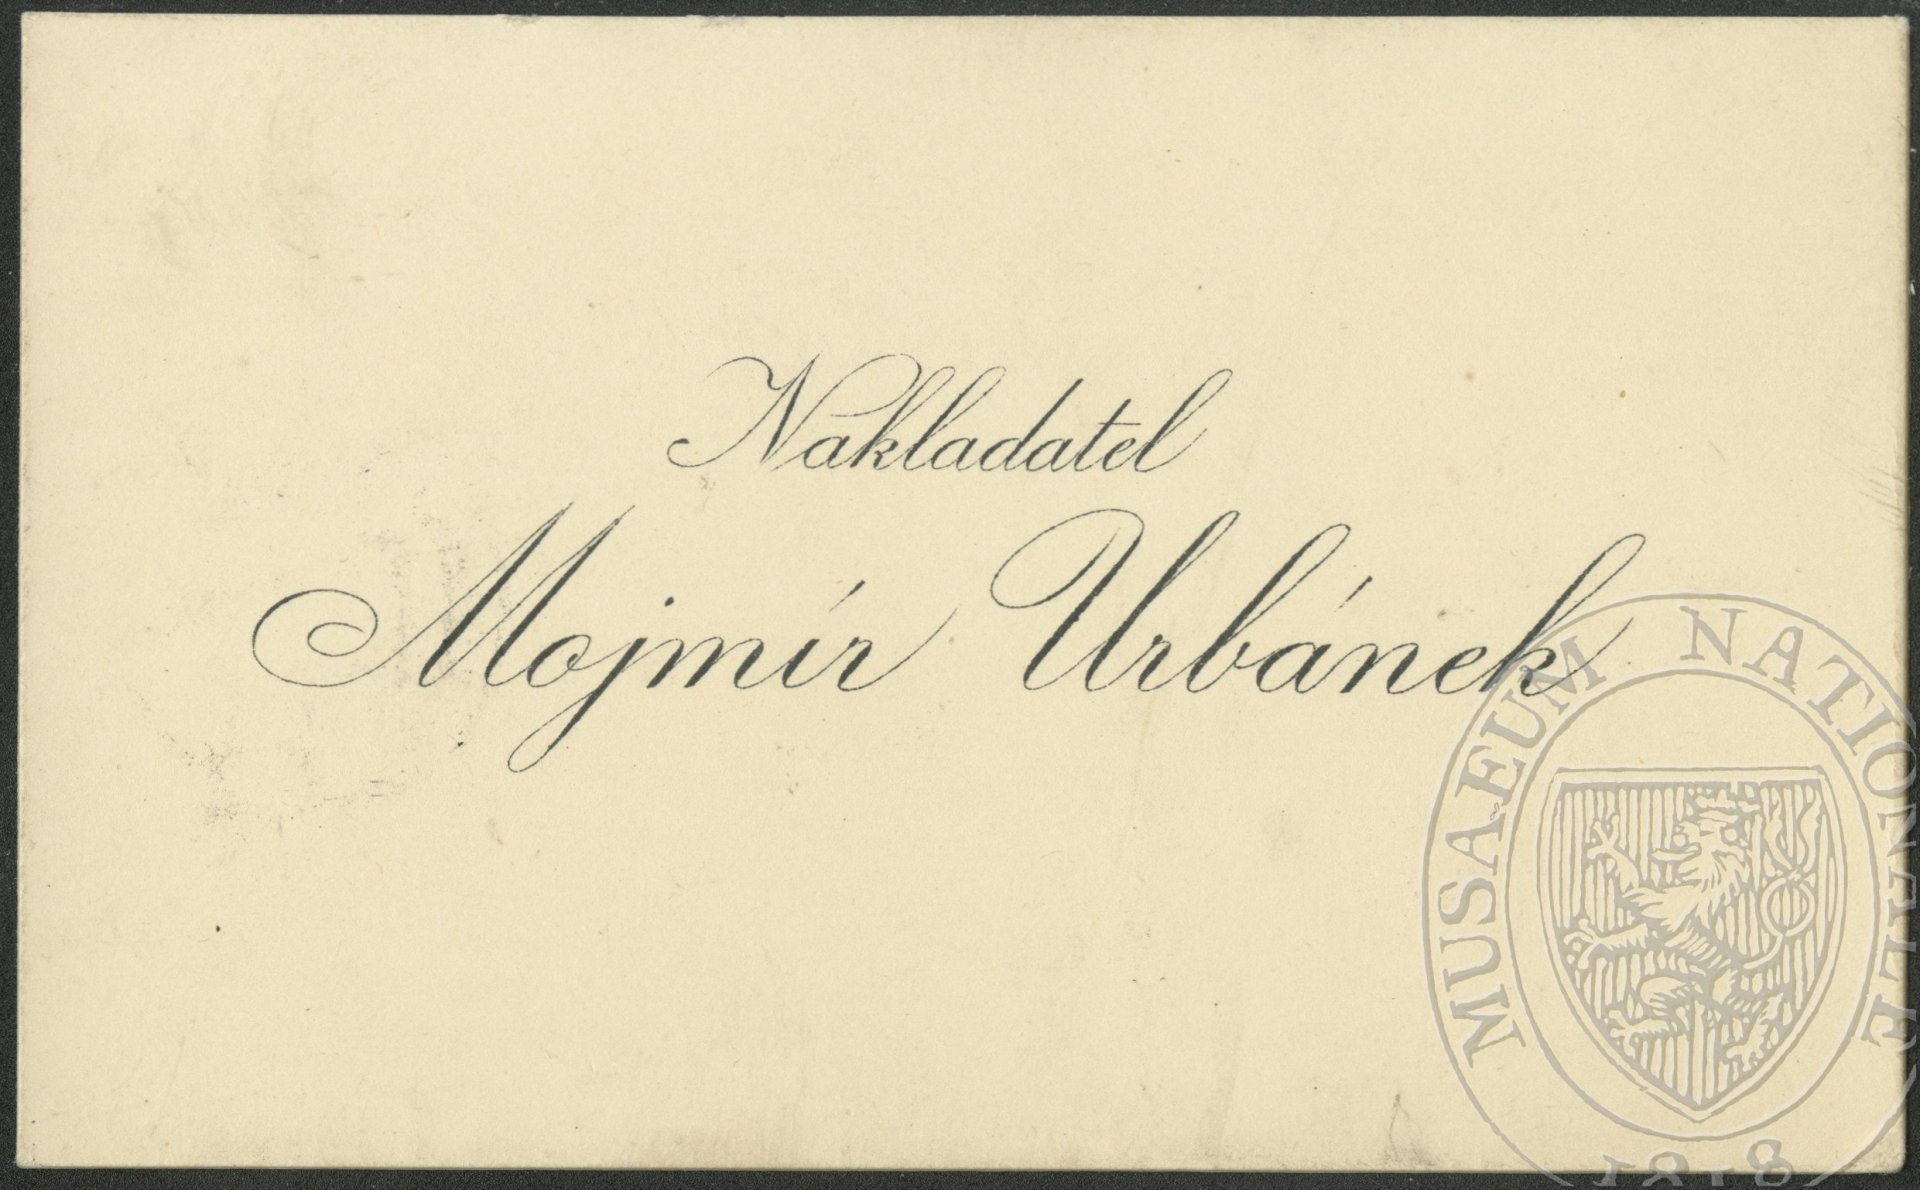 Nakladatel
Mojmír Urbánek
MUSAEUM NATIONALE
1818